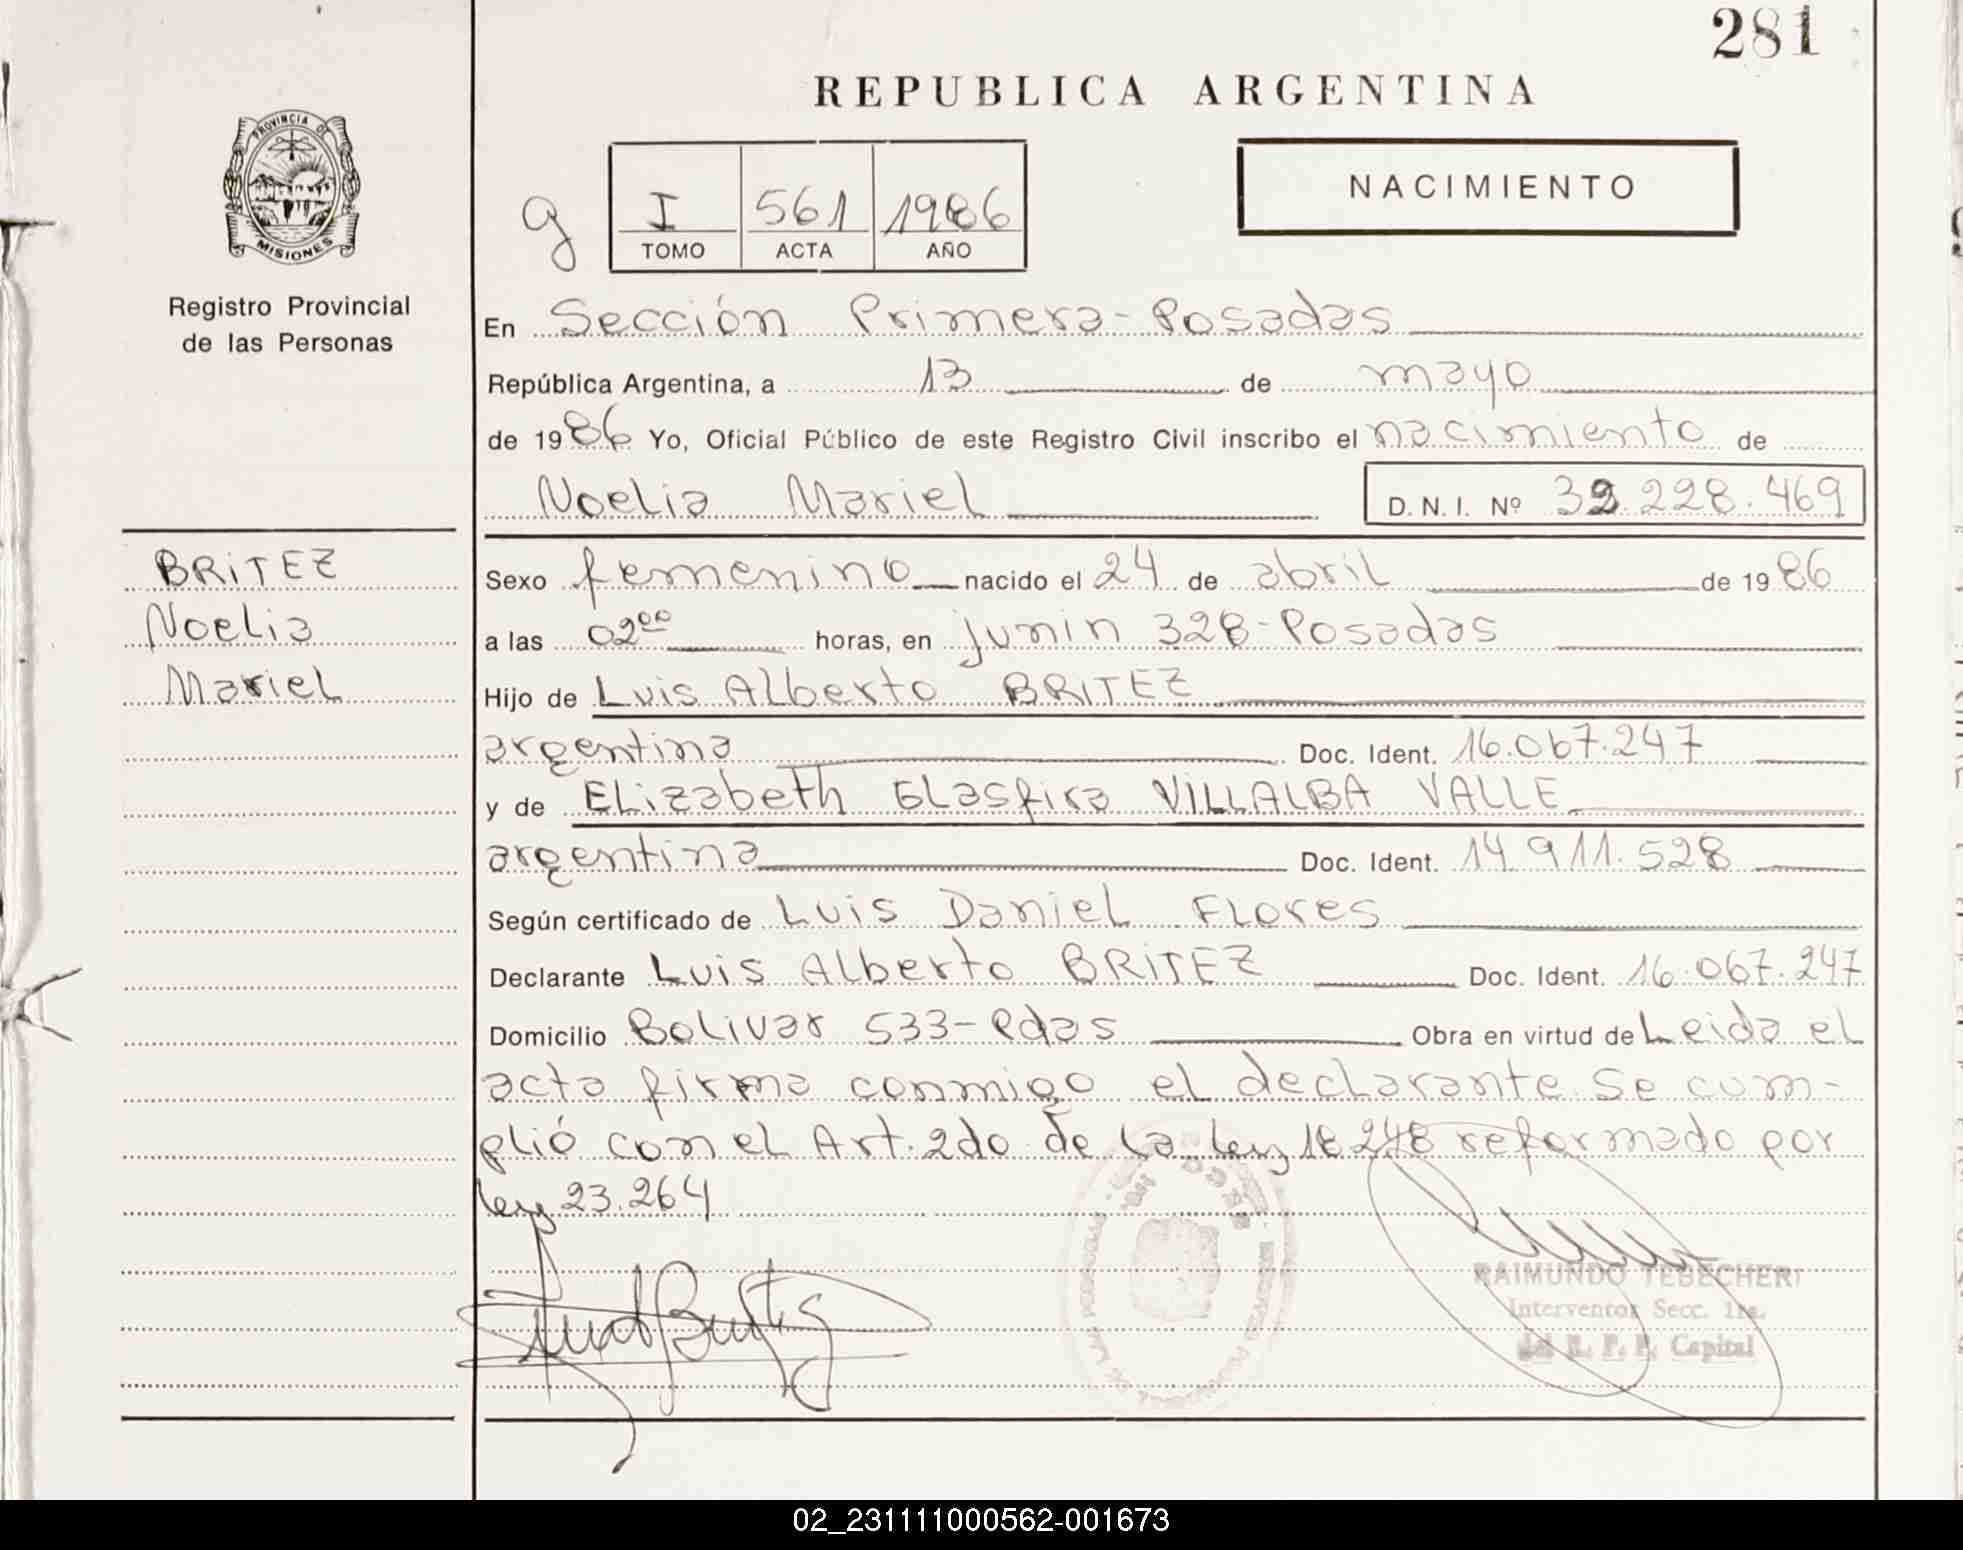 281
REPUBLICA ARGENTINA
PROVINCIA DE
MISIONES
Registro Provincial
de las Personas
g
I 561 1986
TOMO ACTA AÑO
NACIMIENTO
En Sección Primera - Posadas
República Argentina, a 13 de mayo
de 1986 Yo, Oficial Público de este Registro Civil inscribo el nacimiento de
Noelia Mariel D.N.I. Nº 32.228.469
BRITEZ
Noelia
Mariel
Sexo femenino nacido el 24 de abril de 1986
a las 02⁰⁰ horas, en Junin 328 - Posadas
Hijo de Luis Alberto BRITEZ
argentina Doc. Ident. 16.067.247
y de Elizabeth Glasfira VILLALBA VALLE
argentina Doc. Ident. 14.911.528
Según certificado de Luis Daniel Flores
Declarante Luis Alberto BRITEZ Doc. Ident. 16.067.247
Domicilio Bolivar 533 - Pdas Obra en virtud de Leida el
acta firma conmigo el declarante. Se cum-
plió con el Art. 2do de la ley 18.248 reformado por
ley 23.264
RAIMUNDO TEBECHERI
Interventor Secc. 1ra.
del R. P. P. Capital
02_231111000562-001673